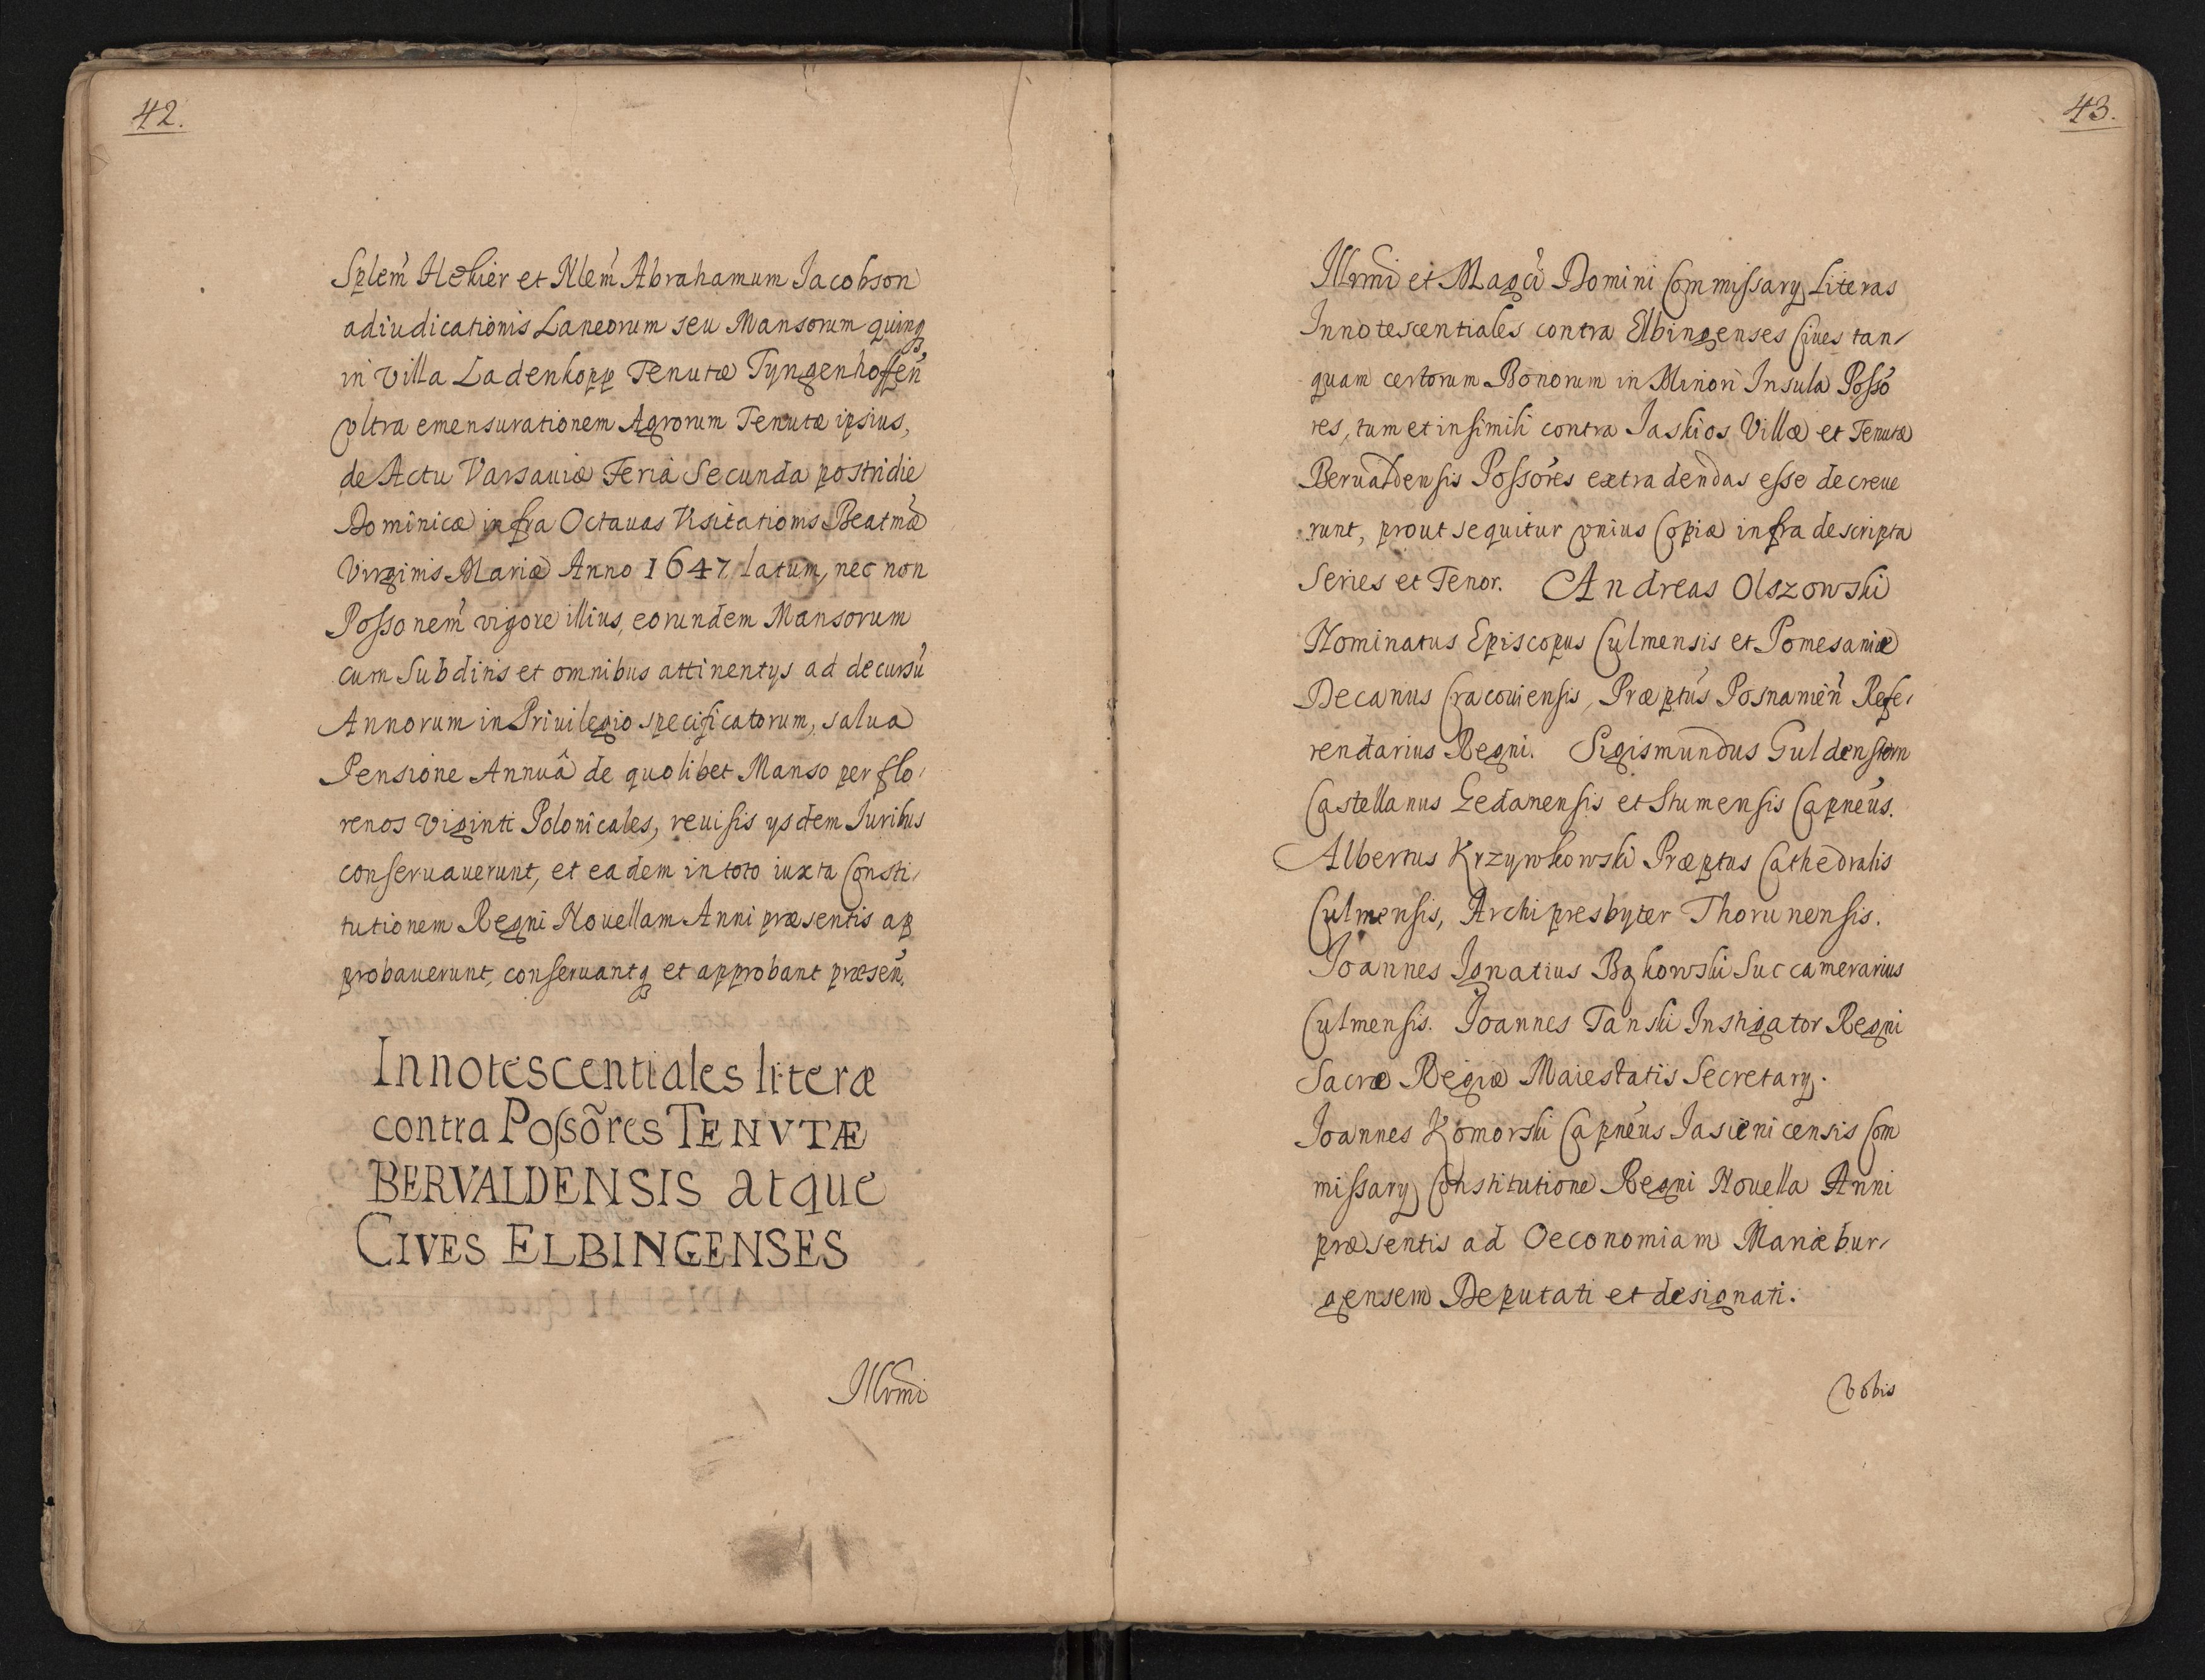 42.
Splem̃ Hekier et Nlem̃ Abrahamum Iacobson
adiudicationis Laneorum seu Mansorum quinq
in villa Ladenkopp Tenutæ Tyngenhoffeñ
vltra emensurationem Agrorum Tenutæ ipsius,
de Actu Varsauiæ Feriâ Secunda postridie
Dominicæ infra Octauas Visitationis Beatmæ
Virginis Mariæ Anno 1647 latum, nec non
Possonem̃ vigore illius, eorundem Mansorum
cum Subditis et omnibus attinentys ad decursũ
Annorum in Priuilegio specificatorum, salua
Pensione Annuâ de quolibet Manso per flo-
renos viginti Polonicales, reuisis ysdem Iuribus
conseruauerunt, et eadem in toto iuxta Consti-
tutionem Regni Nouellam Anni præsentis ap
probauerunt, conseruantq et approbant præseñ.
Innotescentiales literæ
contra Possõres TENVTÆ
BERVALDENSIS atque
CIVES ELBINGENSES
Illrmi
43.
Illrmi et Magci Domini Commissary Literas
Innotescentiales contra Elbingenses Ciues tan-
quam certorum Bonorum in Minori Insula Possõ
res, tum et in simili contra Jaskios Villæ et Tenutæ
Berualdensis Possõres extradendas esse decreue
runt, prout sequitur vnius Copiæ infra descripta
Series et Tenor. Andreas Olszowski
Nominatus Episcopus Culmensis et Pomesaniæ
Decanus Cracouiensis, Præptũs Posnameñ Refe-
rendarius Regni. Sigismundus Guldenstern
Castellanus Gedanensis et Stumensis Capneũs.
Albertus Krzywkowski Præptus Cathedralis
Culmensis, Archipresbyter Thorunensis.
Joannes Ignatius Bąkowski Succamerarius
Culmensis. Joannes Tanski Instigator Regni
Sacræ Regiæ Maiestatis Secretary.
Joannes Komorski Capneũs Jasienicensis Com
missary Constitutione Regni Nouella Anni
præsentis ad Oeconomiam Mariæbur-
gensem Deputati et designati.
Vobis